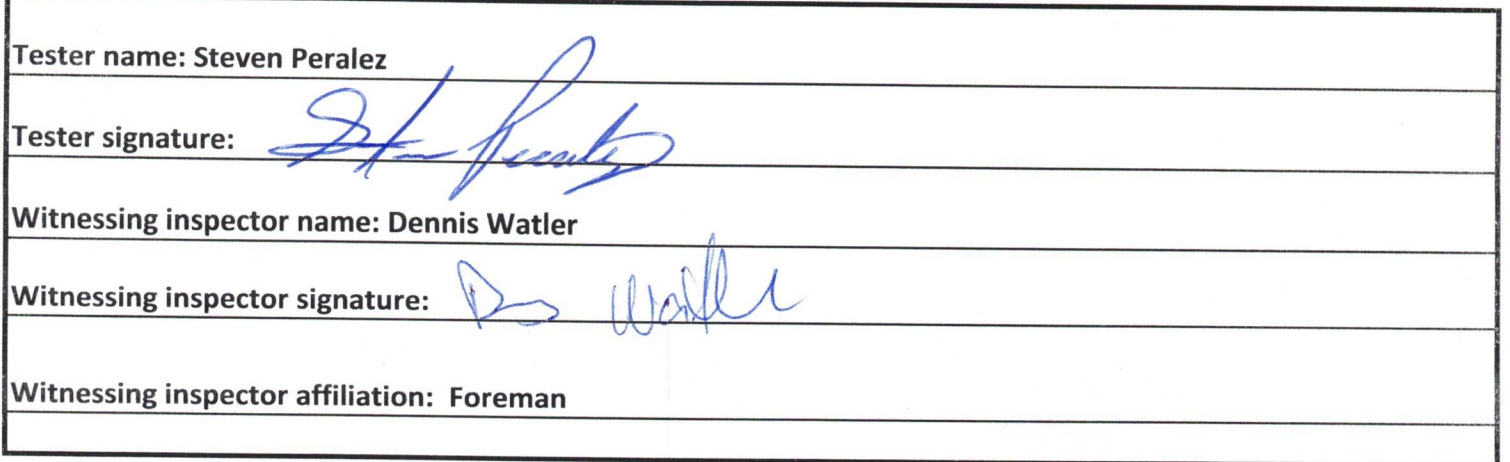 Tester name: Steven Peralez
Tester signature: Steven Peralez
Witnessing inspector name: Dennis Watler
Witnessing inspector signature: Watler
Witnessing inspector affiliation: Foreman